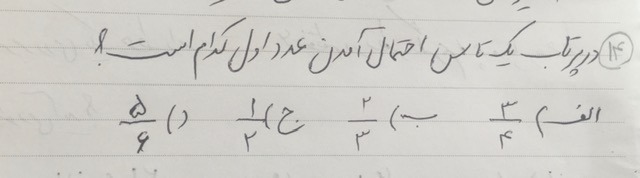 ۱۴) در پرتاب یک تاس احتمال آمدن عدد اول کدام است؟
الف) ۳/۴ ب) ۲/۳ ج) ۱/۲ د) ۵/۶